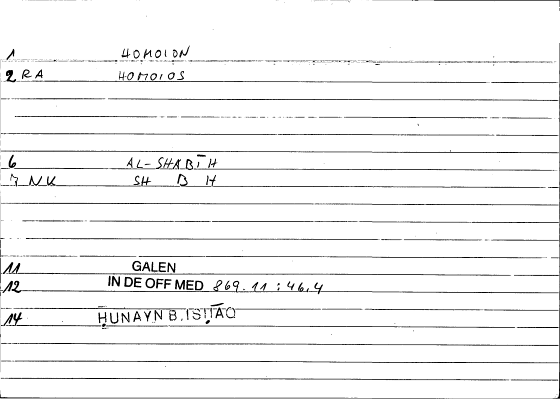 1 HOMOION
2 RA HOMOIOS
6 AL-SHABĪH
7 NK SH B H
11 GALEN
12 IN DE OFF MED 869.11 : 46,4
14 ḤUNAYN B. ISḤĀQ